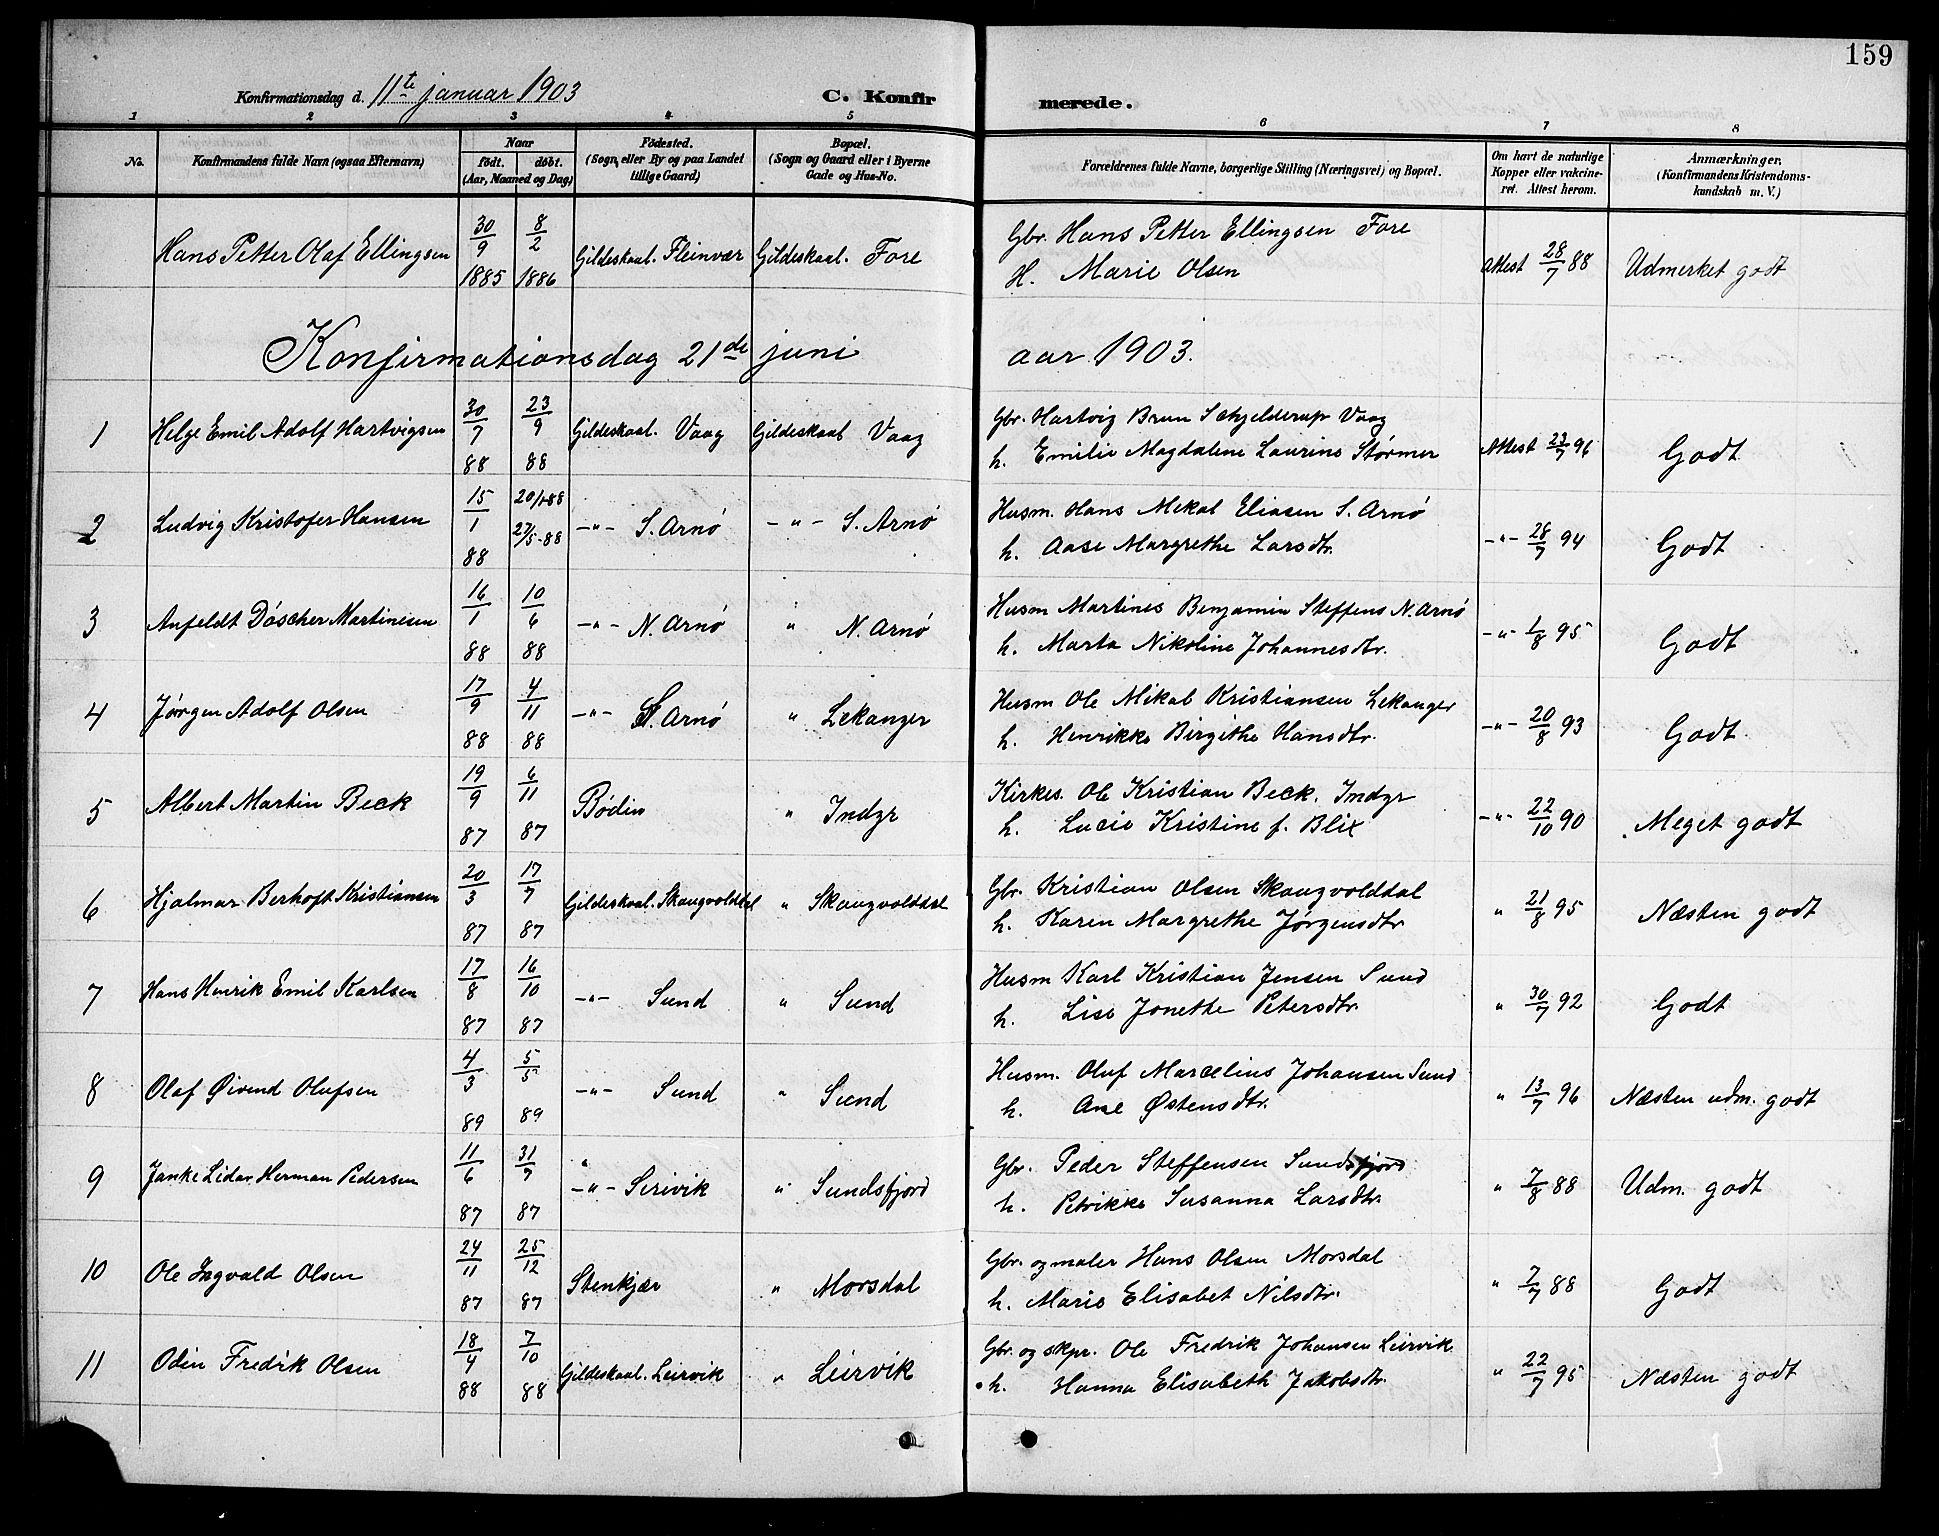 159
Konfirmationsdag d. 11te januar 1903 C. Konfirmerede.
1 2 3 4 5 6 7 8
No. Konfirmandens fulde Navn (ogsaa Efternavn) Naar født. døbt. (Aar, Maaned og Dag) Födested. (Sogn, eller By og paa Landet tillige Gaard) Bopæl. (Sogn og Gaard eller i Byerne Gade og Hus-No. Forældrenes fulde Navne, borgerlige Stilling (Næringsvei) og Bopæl. Om havt de naturlige Kopper eller vakcineret. Attest herom. Anmærkninger. (Konfirmandens Kristendomskundskab m. V.)
Hans Petter Olaf Ellingsen 30/9 1885 8/2 1886 Gildeskaal. Fleinvær Gildeskaal. Fore Gbr. Hans Petter Ellingsen Fore
H. Marie Olsen Attest 28/7 88 Udmerket godt
Konfirmationsdag 21de juni aar 1903.
1 Helge Emil Adolf Hartvigsen 30/7 88 23/9 88 Gildeskaal. Vaag Gildeskaal Vaag Gbr. Hartvig Brun Schjelderup Vaag
h. Emilie Magdalene Laurine Størmer Attest 23/7 96 Godt
2 Ludvig Kristofer Hansen 15/1 88 20/1-88 27/5-88 -"- S. Arnö -"- S. Arnö Husm. Hans Mikal Eliasen S. Arnö
h. Aase Margrethe Larsdtr. -"- 28/7 94 Godt
3 Anfeldt Döscher Martinesen 16/1 88 10/6 88 -"- N. Arnö " N. Arnö Husm Martines Benjamin Steffens N. Arnö
h. Marta Nikoline Johannesdtr. -"- 1/8 95 Godt
4 Jørgen Adolf Olsen 17/9 88 4/11 88 -"- S. Arnö " Lekanger Husm Ole Mikal Kristiansen Lekanger
h. Henrikke Birgithe Hansdtr. -"- 20/8 93 Godt
5 Albert Martin Beck 19/9 87 6/11 87 Bodin " Indyr Kirkes. Ole Kristian Beck. Indyr
h. Lucie Kristine f. Blix -"- 22/10 90 Meget godt
6 Hjalmar Berhoft Kristiansen 20/3 87 17/7 87 Gildeskaal. Skaugvolddal " Skaugvolddal Gbr. Kristian Olsen Skaugvolddal
h. Karen Margrethe Jørgensdtr " 21/8 95 Næsten godt
7 Hans Henrik Emil Karlsen 17/8 87 16/10 87 -"- Sund " Sund Husm Karl Kristian Jensen Sund
h. Lise Jonette Petersdtr. " 30/7 92 Godt
8 Olaf Øivend Olufsen 4/3 89 5/5 89 -"- Sund " Sund Husm. Oluf Marcelius Johansen Sund
h. Ane Østensdtr. " 13/7 96 Næsten udm. godt
9 Janke Lidar Herman Pedersen 11/6 87 31/7 87 -"- Sirivik " Sundsfjord Gbr. Peder Steffensen Sundsfjord
h. Petrikke Susanna Larsdtr. " 7/8 88 Udm. godt
10 Ole Ingvald Olsen 24/11 87 25/12 87 Stenkjær " Morsdal Gbr. og maler Hans Olsen Morsdal
h. Marie Elisabet Nilsdtr. " 7/7 88 Godt
11 Odin Fredrik Olsen 18/4 88 7/10 88 Gildeskaal. Leirvik " Leirvik Gbr. og skpr. Ole Fredrik Johansen Leirvik
h. Hanna Elisabeth Jakobsdtr. " 22/7 95 Næsten godt